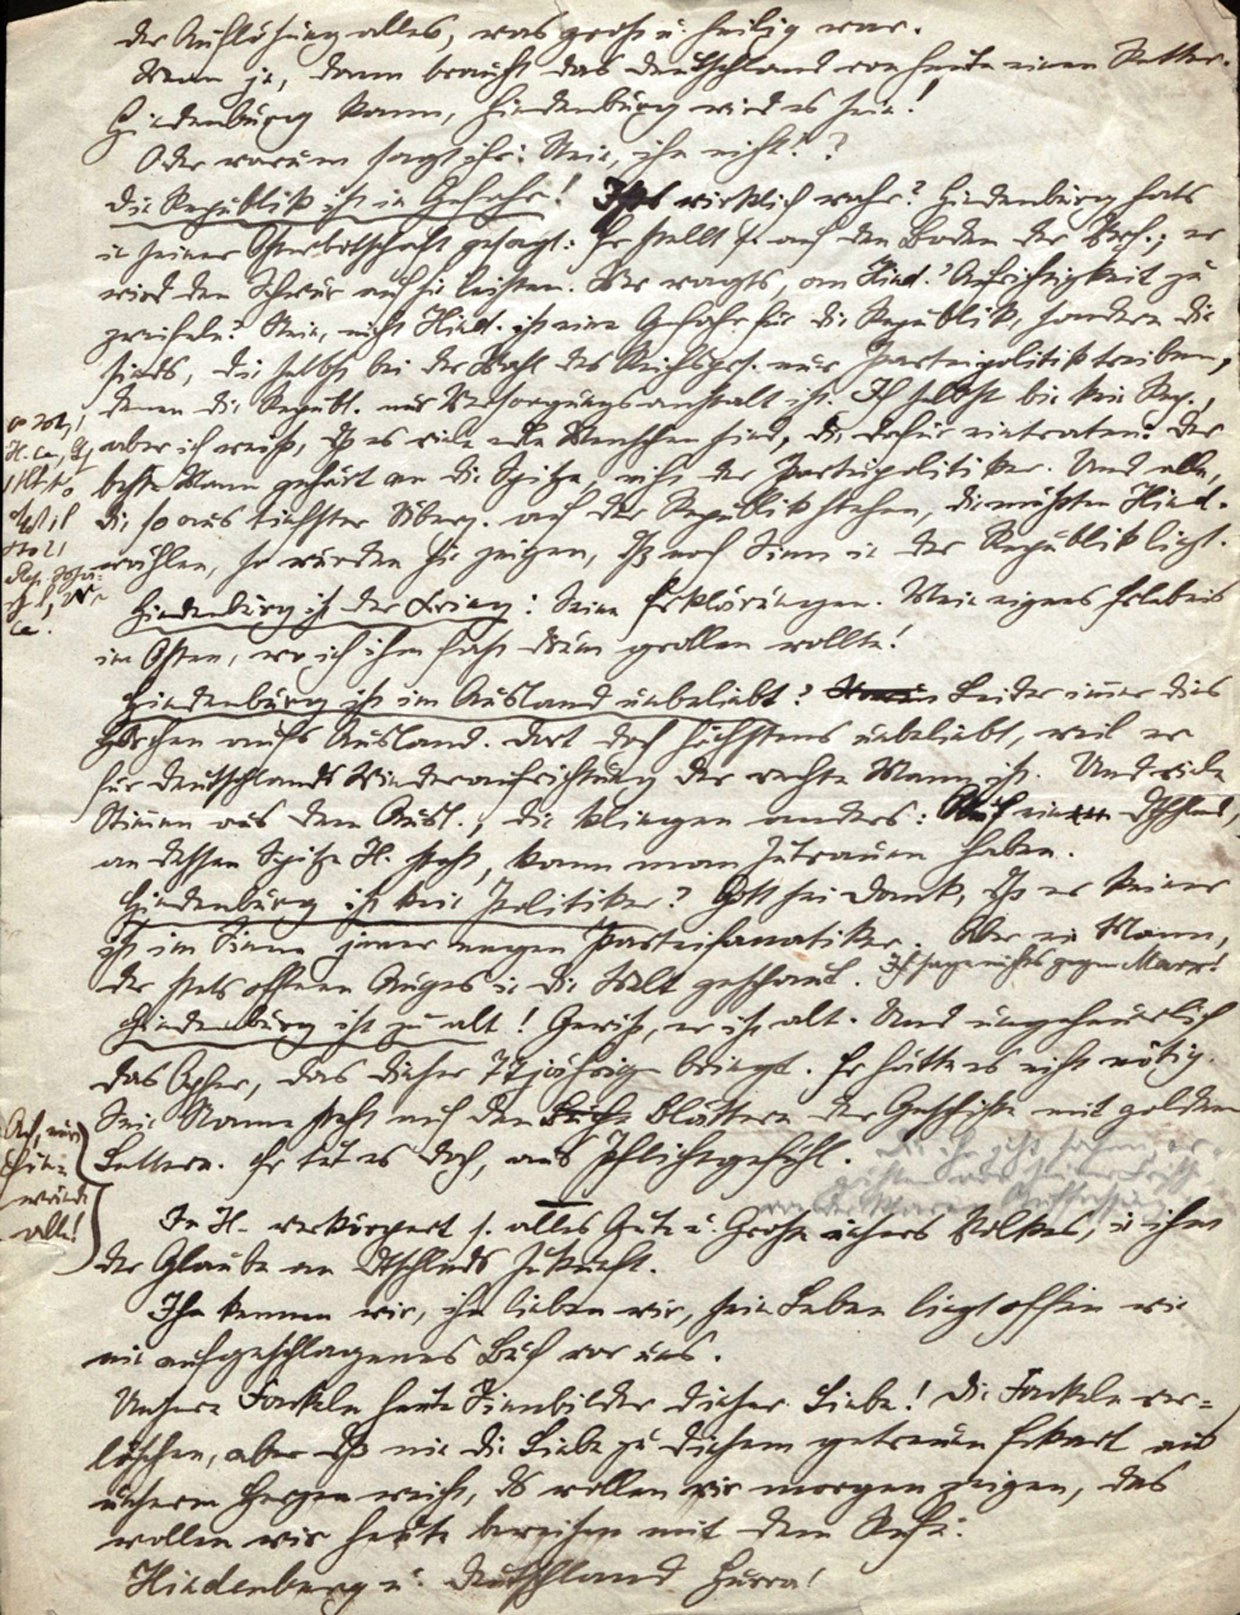 der Auflösung alles, was groß u. heilig war.
Wenn je, dann braucht das Deutschland von heute einen Retter.
Hindenburg kann, Hindenburg wird es sein!
Oder warum sagt ihr: Nein, ihn nicht!?
Die Republik ist in Gefahr! Ists wirklich wahr? Hindenburg hats
in seiner Osterbotschaft gesagt: Er stellt s. auf den Boden der Verf.; er
wird den Schwur auf sie leisten. Wer wagts, an Hind.' Aufrichtigkeit zu
zweifeln? Nein, nicht Hind. ist eine Gefahr für die Republik, sondern die
sinds, die selbst bei der Wahl des Reichspr. nur Parteipolitik treiben,
denen die Republ. nur Versorgungsanstalt ist. Ich selbst bin kein Rep.,
aber ich weiß, dß es viele edle Menschen sind, die dafür eintraten: Der
beste Mann gehört an die Spitze, nicht der Parteipolitiker. Und alle,
die so aus tiefster Überz. auf der Republik stehen, die müßten Hind.
wählen, so würden sie zeigen, dß noch Sinn in der Republik liegt.
Hindenburg ist der Krieg: Seine Erklärungen. Mein eigenes Erlebnis
im Osten, wo ich ihm fast drum grollen wollte!
Hindenburg ist im Ausland unbeliebt? Leider immer dies
Horchen aufs Ausland. Dort doch höchstens unbeliebt, weil er
für Deutschlands Wiederaufrichtung der rechte Mann ist. Und viele
Stimmen aus dem Ausl., die klingen anders: Auf ein Dtschland,
an dessen Spitze H. steht, kann man Zutrauen haben.
Hindenburg ist kein Politiker? Gott sei Dank, dß er keiner
ist im Sinne jener engen Parteifanatiker. Aber ein Mann,
der stets offenen Auges in die Welt geschaut. Ich sage nichts gegen Marx!
Hindenburg ist zu alt! Gewiß, er ist alt. Und ungeheuerlich
das Opfer, das dieser 77jährige bringt. Er hätte es nicht nötig.
Sein Name steht auf den Blättern der Geschichte mit goldenen
Lettern. Er tut es doch, aus Pflichtgefühl.
In H. verkörpert s. alles Gute u. Große unsers Volkes, in ihm
der Glaube an Dtschlnds Zukunft.
Ihn kennen wir, ihn lieben wir, sein Leben liegt offen wie
ein aufgeschlagenes Buch vor uns.
Unsere Fackeln heute Sinnbilder dieser Liebe! Die Fackeln ver=
löschen, aber dß nie die Liebe zu diesem getreuen Eckart aus
unserm Herzen weicht, ds wollen wir morgen zeigen, das
wollen wir heute beweisen mit dem Rufe:
Hindenburg u. Deutschland Hurra!